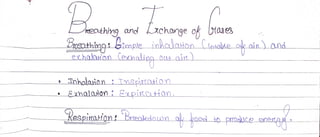 Breathing and Exchange of Gases
Breathing: Simple inhalation (intake of air) and
exhalation (exhaling out air)
• Inhalation: Inspiration
• Exhalation: Expiration.
Respiration: Breakdown of food to produce energy.